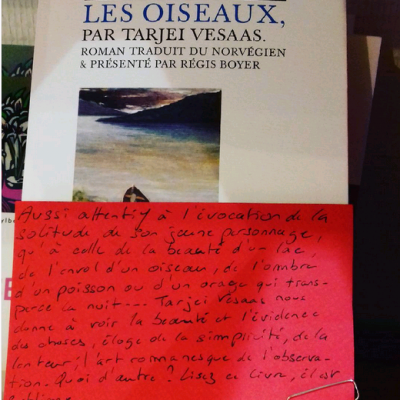 LES OISEAUX,
PAR TARJEI VESAAS.
ROMAN TRADUIT DU NORVÉGIEN
& PRÉSENTÉ PAR RÉGIS BOYER
Aussi attentif à l'évocation de la
solitude de son jeune personnage,
qu'à celle de la beauté d'un lac,
de l'envol d'un oiseau, de l'ombre
d'un poisson ou d'un orage qui trans-
perce la nuit... Tarjei Vesaas nous
donne à voir la beauté et l'évidence
des choses, éloge de la simplicité, de la
lenteur, l'art romanesque de l'observa-
tion. Quoi d'autre ? Lisez ce livre, il est